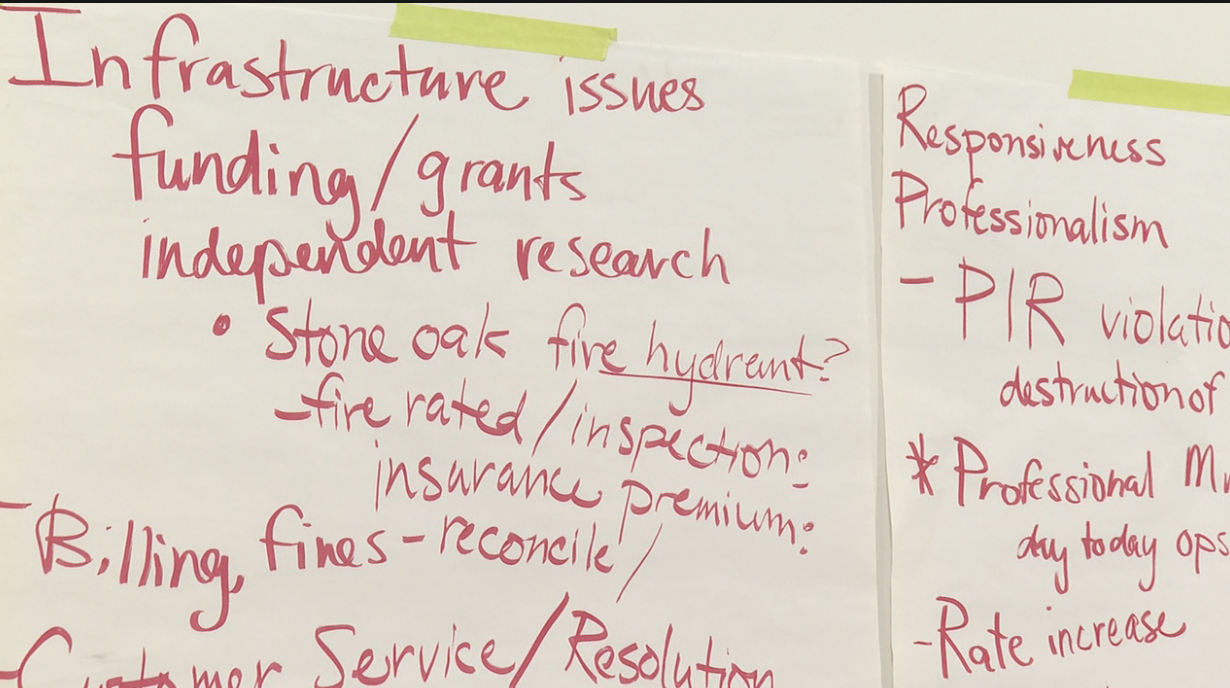 Infrastructure issues
funding/grants
independent research
• Stone oak fire hydrant?
-fire rated/inspection:
insurance premium:
- Billing, fines - reconcile /
- Customer Service/Resolution
Responsiveness
Professionalism
- PIR violatio
destruction of
* Professional
day to day ops
- Rate increase